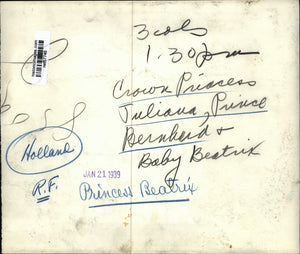 3 cols
1.30 pm
Crown Princess
Juliana, Prince
Bernhard &
Baby Beatrix
Holland
JAN 21 1939
R.F.
Princess Beatrix